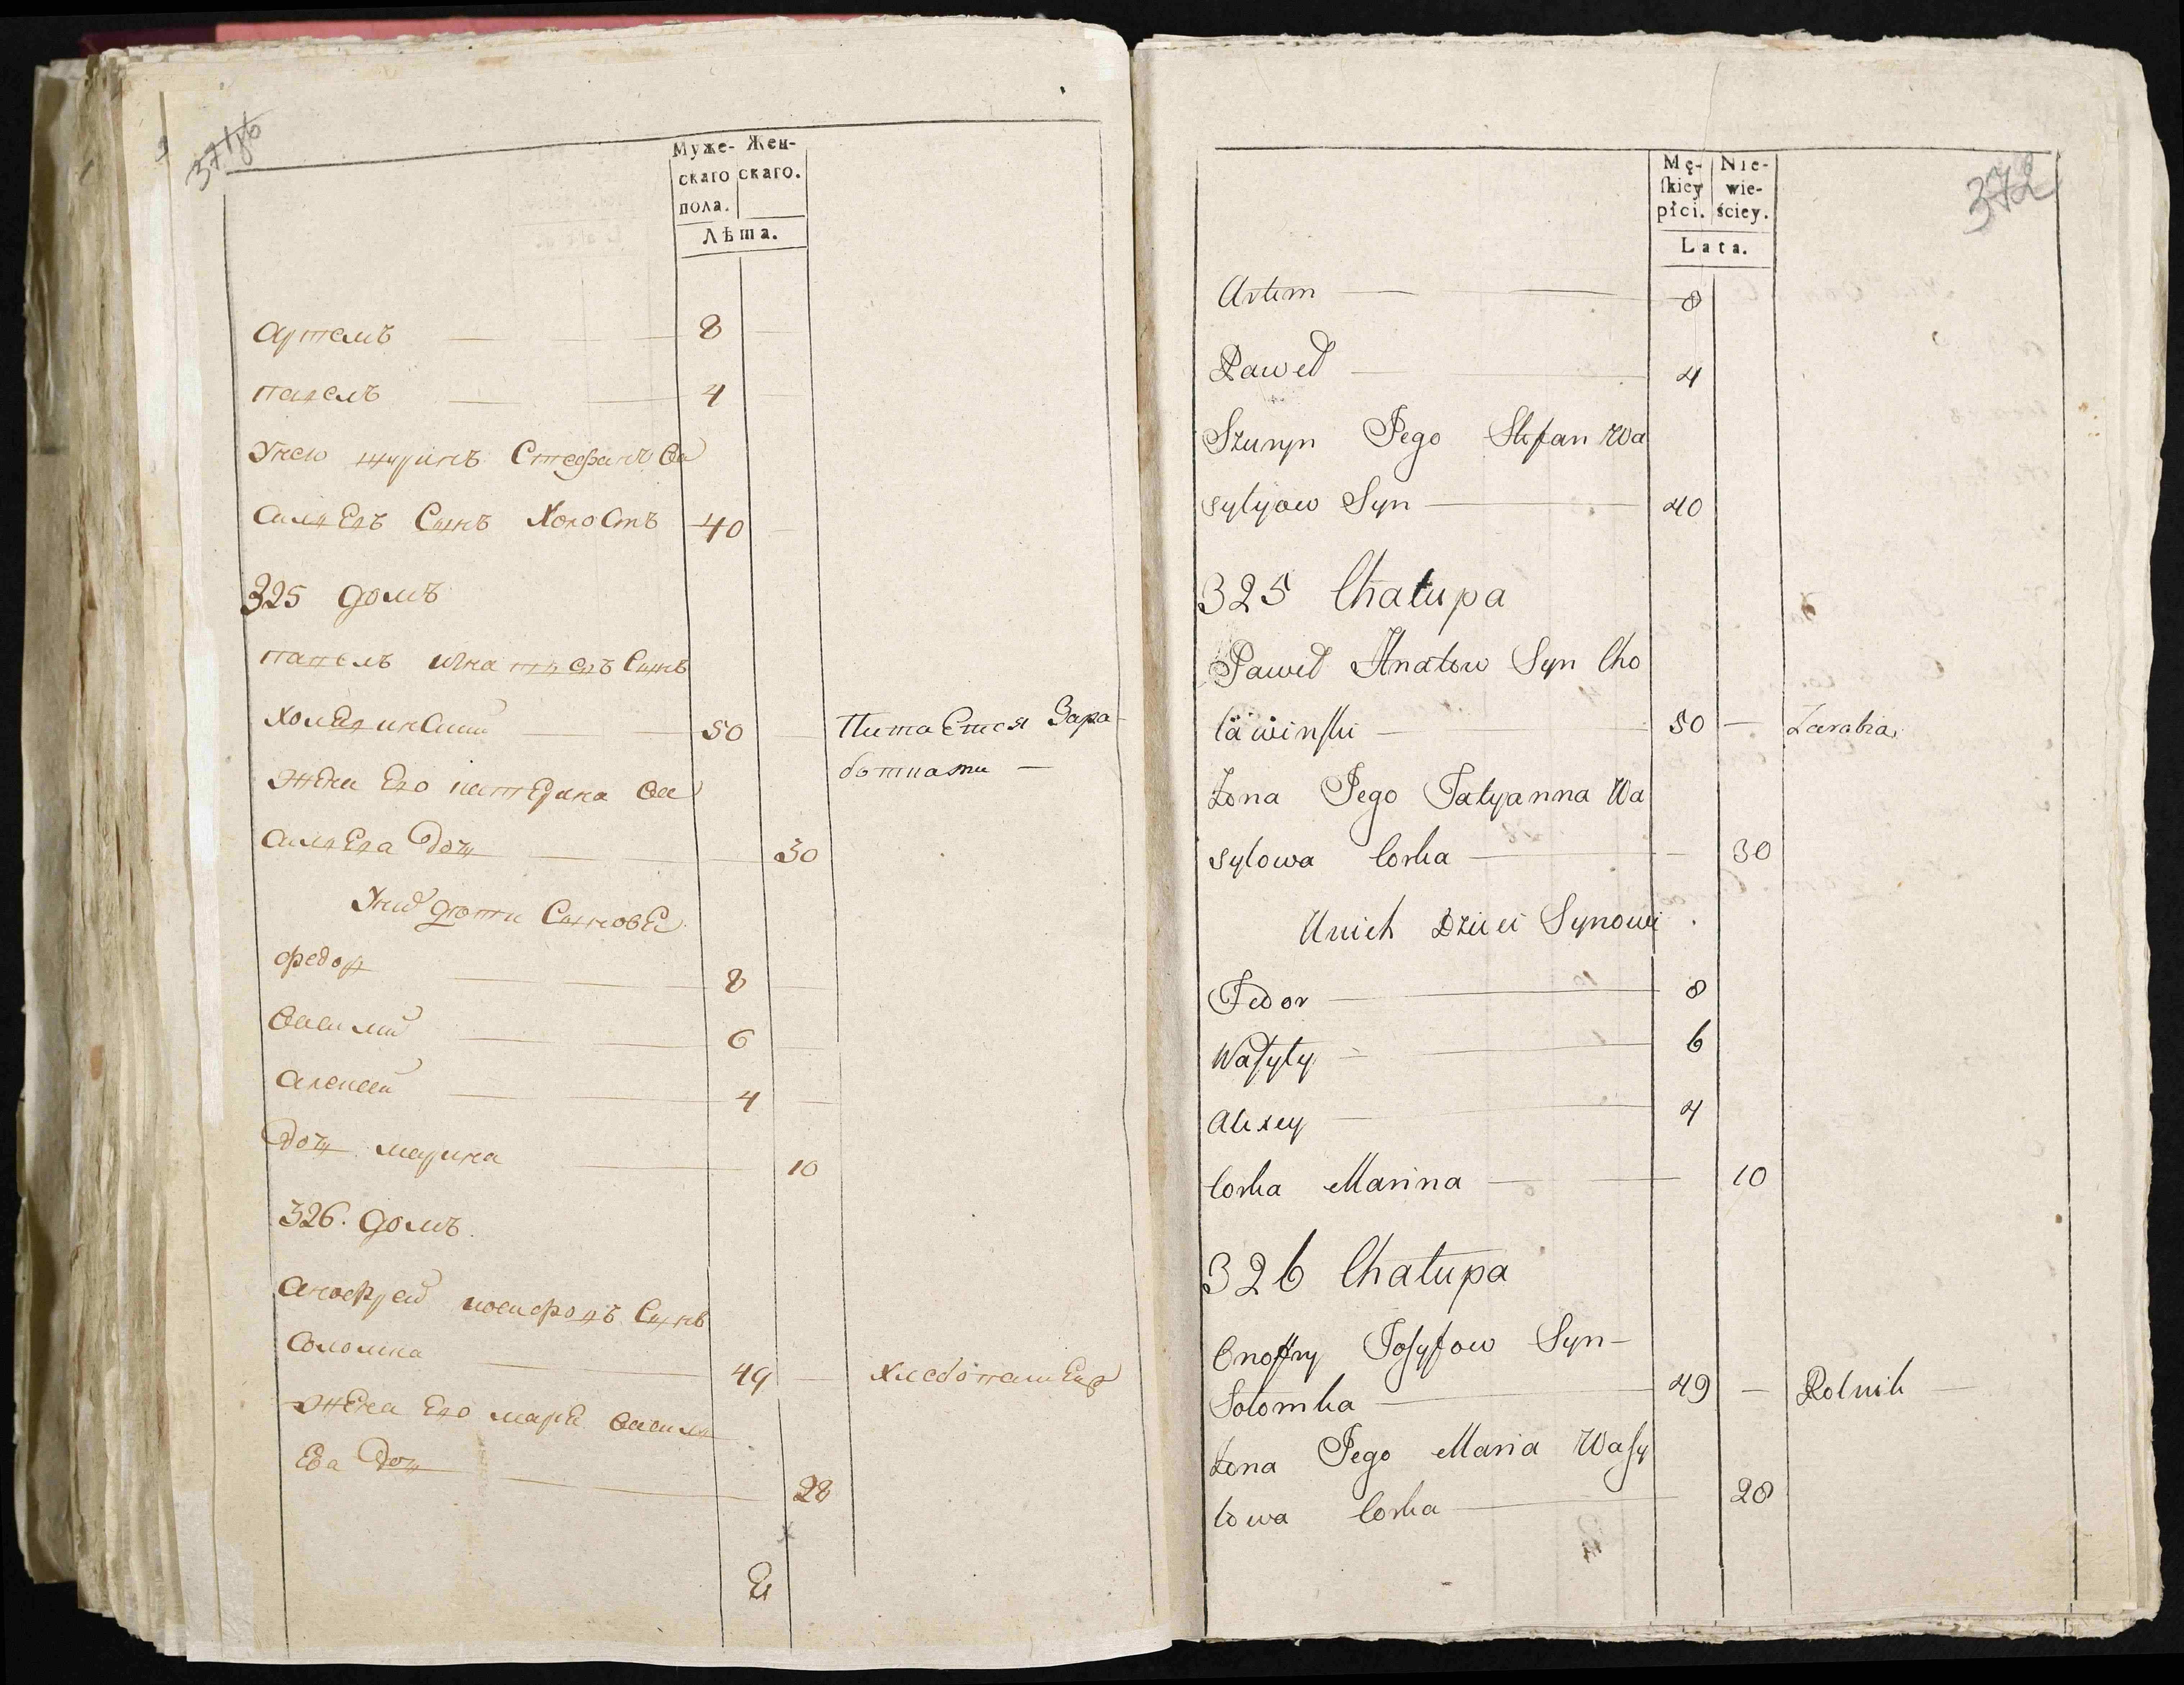 Муже- Жен-
скаго скаго.
пола.
Лѣта.
Артемъ — 8 —
Павелъ — 4
Унею шуринъ Стефанъ Ва
сильевъ Сынъ Холостъ 40 —
325 домъ
Павелъ Игнатьевъ Сынъ
Холевинский — 50 — Питается Зара-
ботками —
Жена Его катерина Ва
сильева Дочь — 30
Уних дети Сыновье
Федор — 8 —
Василий — 6 —
Алексей — 4 —
Дочь марина — 10
326. домъ.
Анофрей иосифовъ Сынъ
Соломка — 49 — Хлебопашец
Жена Его марья Василь
Ева Дочь — 28
372
Mę- Nie-
ſkiey wie-
płci. ściey.
Lata.
Artem — 8
Paweł — 4
Szuryn Jego Stefan Wa
sylyow Syn — 40
325 Chałupa
Paweł Hnatow Syn Cho
lawinſki — 50 — Zarabia
Zona Jego Tatyanna Wa
sylowa Corka — 30
Unich Dzieci Synowi
Fedor — 8
Waſyly — 6
Alexey — 4
Corka Marina — 10
326 Chałupa
Onoffry Joſyfow Syn —
Sołomka — 49 — Rolnik —
Zona Jego Maria Waſy
lowa Corka — 28